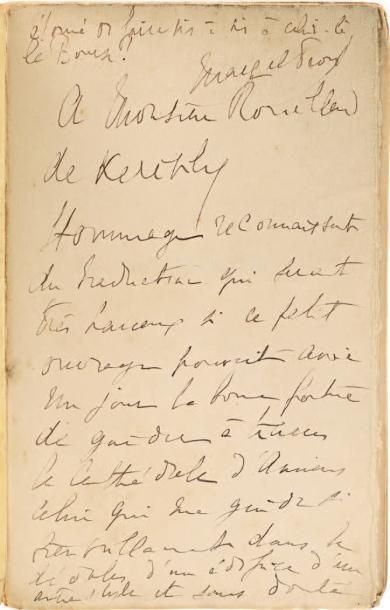 à celui-là
Marcel Proust
A Monsieur
de
Hommage reconnaissant
du traducteur qui serait
très heureux si ce petit
ouvrage pouvait avoir
un jour la bonne fortune
de guider à travers
la Cathédrale d'Amiens
celui qui me guida si
dans le
d'un édifice d'un
autre style et sans doute